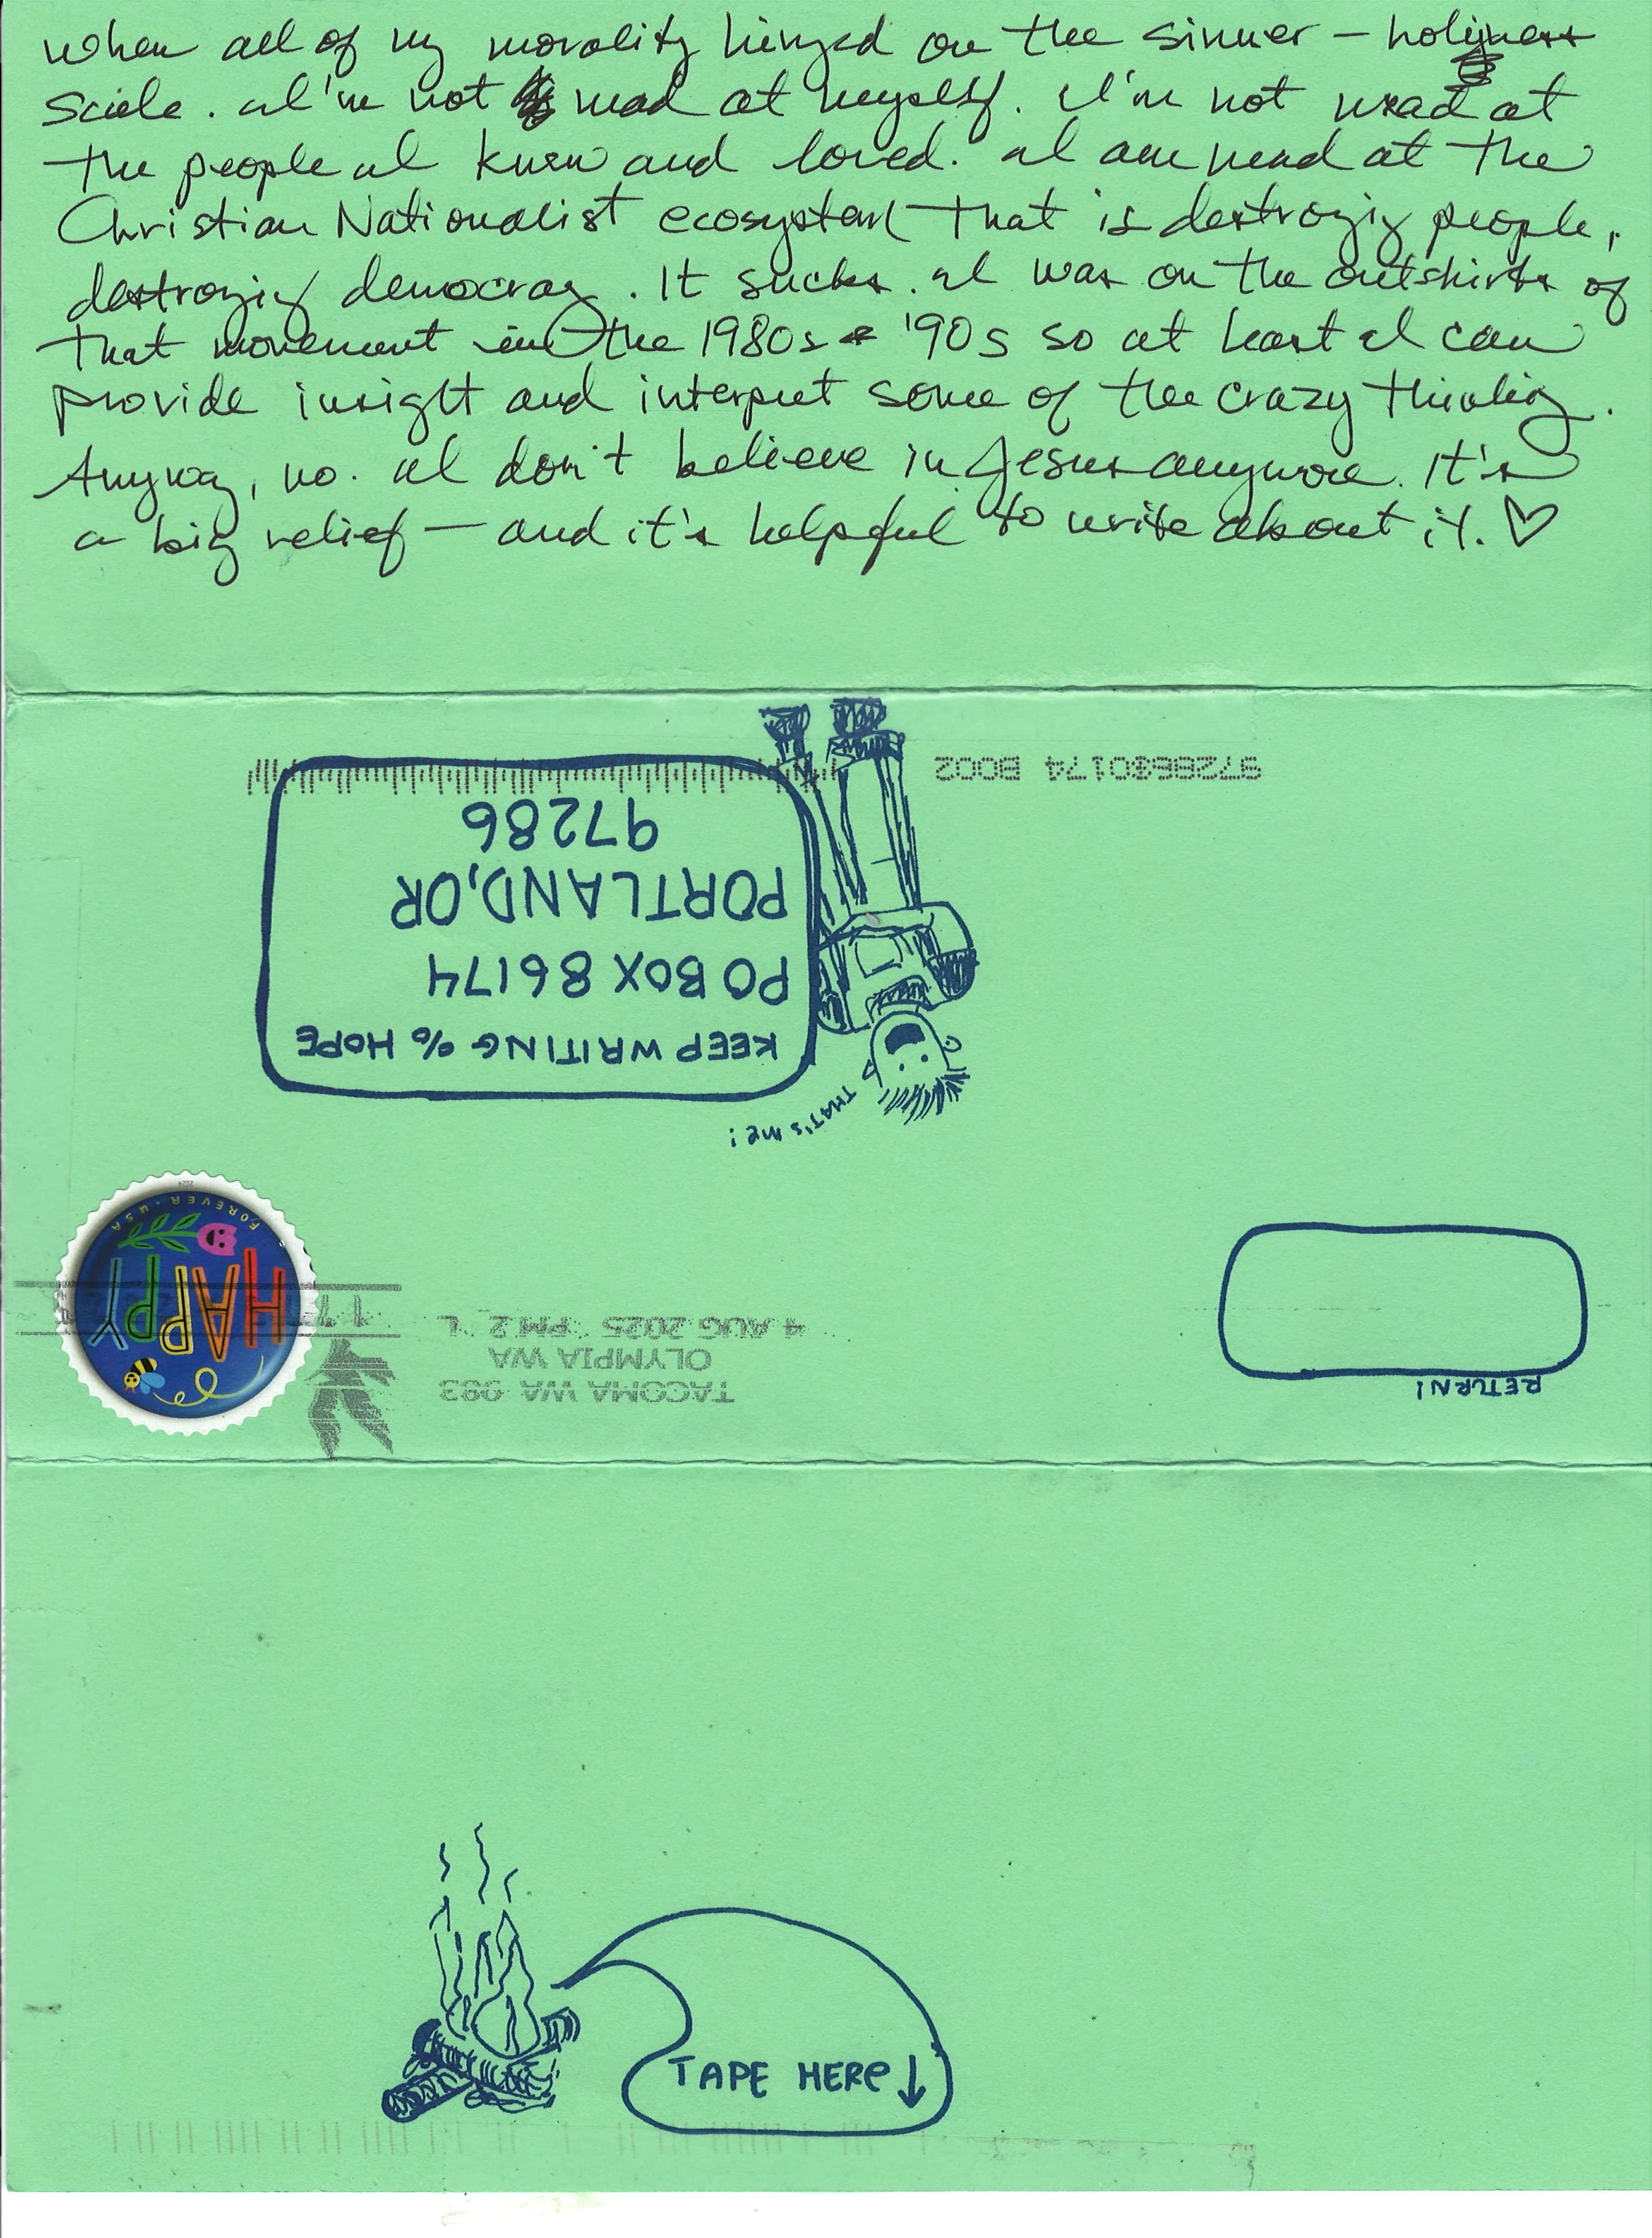 when all of my morality hinged on the sinner - holiness
scale. I'm not mad at myself. I'm not mad at
the people I knew and loved. I am mad at the
Christian Nationalist ecosystem that is destroying people,
destroying democracy. It sucks. I was on the outskirts of
that movement in the 1980s & '90s so at least I can
provide insight and interpret some of the crazy thinking.
Anyway, no. I don't believe in Jesus anymore. It's
a big relief - and it's helpful to write about it. ♡
97286$0174 B002
THAT'S ME!
KEEP WRITING % HOPE
PO BOX 86174
PORTLAND, OR
97286
HAPPY
FOREVER · USA
2024
TACOMA WA 983
OLYMPIA WA
4 AUG 2025 PM 2 L
RETURN!
TAPE HERE ↓